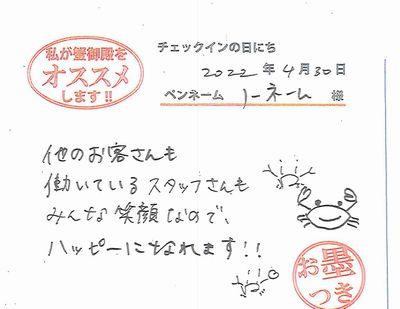 私が蟹御殿を
オススメ
します!!
チェックインの日にち
2022年4月30日
ペンネーム ノーネーム 様
他のお客さんも
働いているスタッフさんも
みんな笑顔なので、
ハッピーになれます!!
お墨
つき